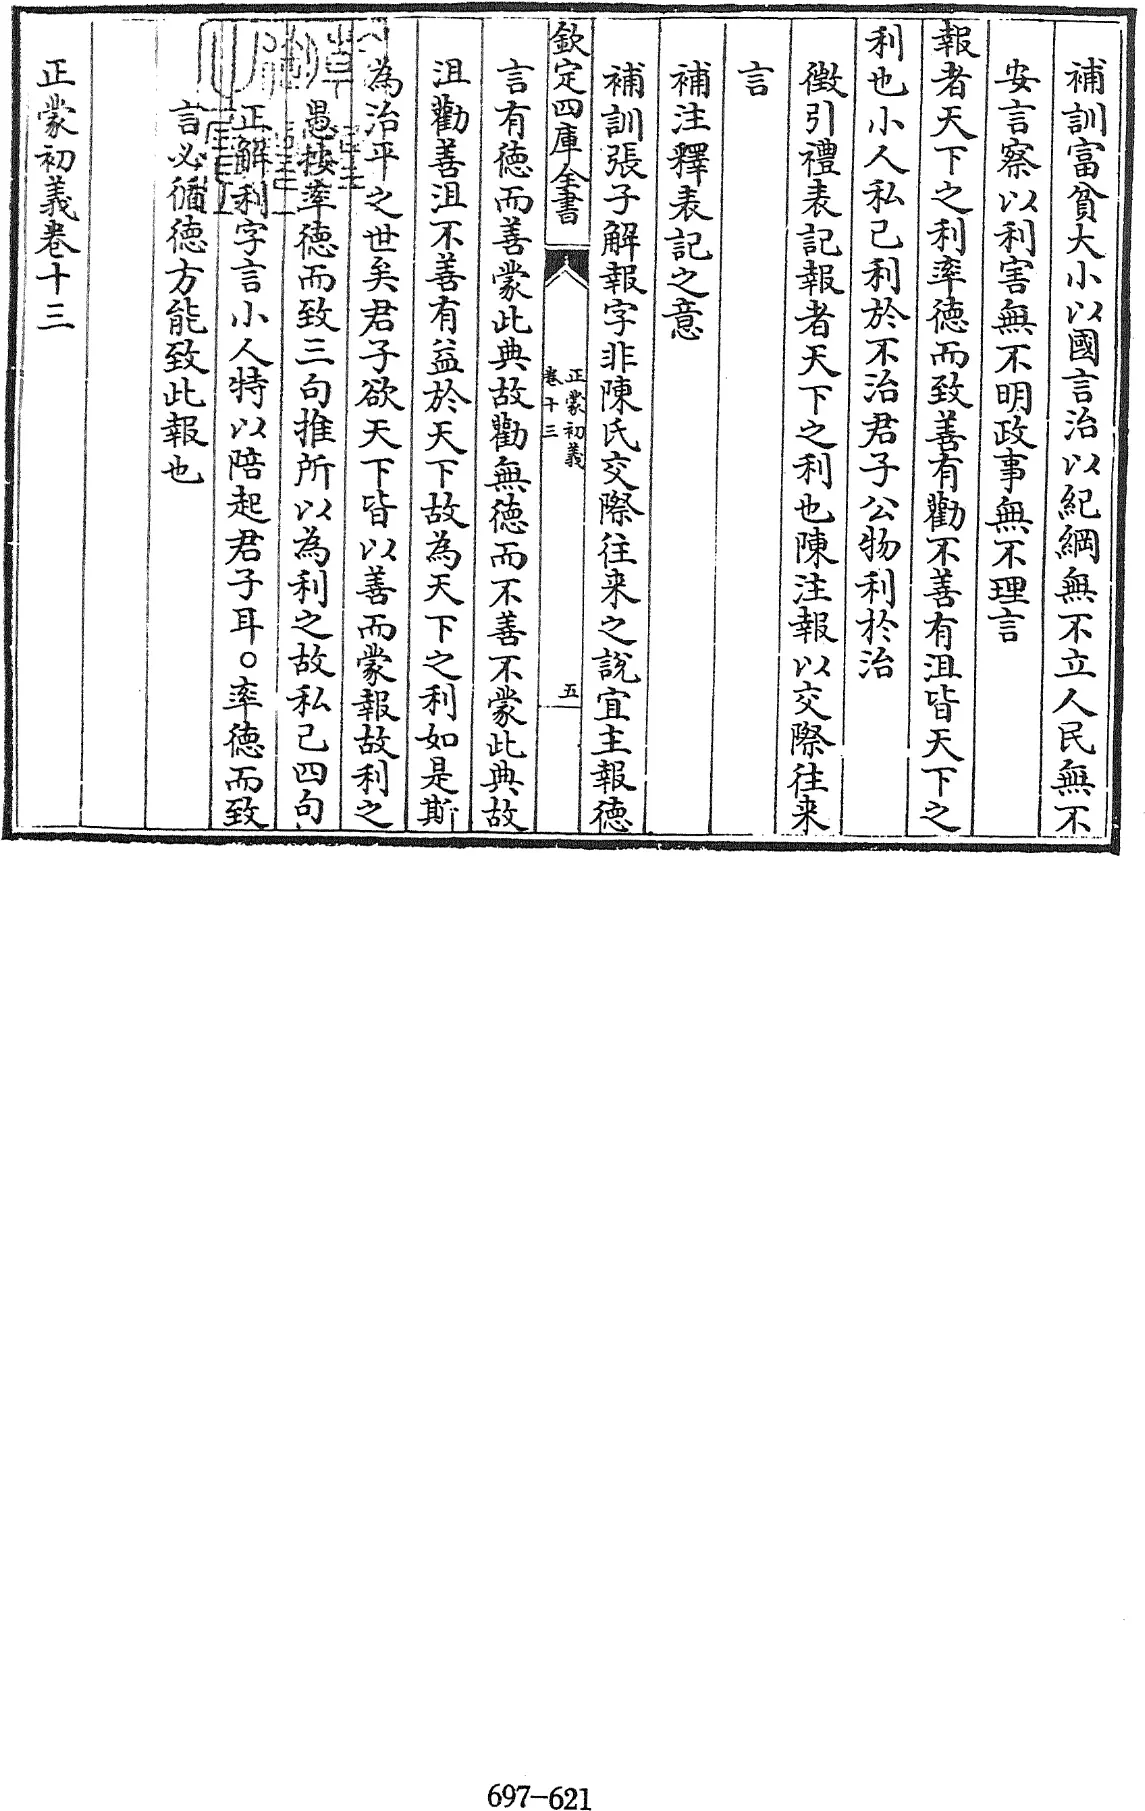 補訓富貧大小以國言治以紀綱無不立人民無不
安言察以利害無不明政事無不理言
報者天下之利率德而致善有勸不善有沮皆天下之
利也小人私己利於不治君子公物利於治
徵引禮表記報者天下之利也陳注報以交際往来
言
補注釋表記之意
補訓張子解報字非陳氏交際往来之說宜主報德
欽定四庫全書
正蒙初義
卷十三
五
言有德而善蒙此典故勸無德而不善不蒙此典故
沮勸善沮不善有益於天下故為天下之利如是斯
為治平之世矣君子欲天下皆以善而蒙報故利之
愚按率德而致三句推所以為利之故私己四句
正解利字言小人特以陪起君子耳○率德而致
言必循德方能致此報也
正蒙初義卷十三
697-621